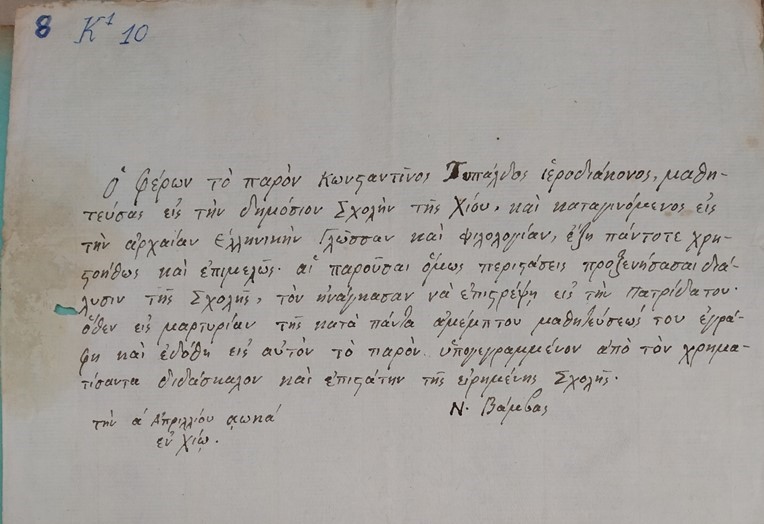 8 Κ¹ 10
Ὁ φέρων τὸ παρὸν Κωνσταντῖνος Τυπάλδος ἱεροδιάκονος, μαθη-
τεύσας εἰς τὴν δημόσιον Σχολὴν τῆς Χίου, καὶ καταγινόμενος εἰς
τὴν ἀρχαίαν Ἑλληνικὴν Γλῶσσαν καὶ φιλολογίαν, ἔζη πάντοτε χρη-
στοήθως καὶ ἐπιμελῶς· αἱ παροῦσαι ὅμως περιστάσεις προξενήσασαι διά-
λυσιν τῆς Σχολῆς, τὸν ἠνάγκασαν νὰ ἐπιστρέψῃ εἰς τὴν πατρίδα του·
ὅθεν εἰς μαρτυρίαν τῆς κατὰ πάντα ἀμέμπτου μαθητεύσεώς του ἐγρά-
φη καὶ ἐδόθη εἰς αὐτὸν τὸ παρὸν ὑπογεγραμμένον ἀπὸ τὸν χρημα-
τίσαντα διδάσκαλον καὶ ἐπιστάτην τῆς εἰρημένης Σχολῆς.
τὴν α΄ Ἀπριλλίου αωκα΄
Ν. Βάμβας
ἐν Χίῳ.